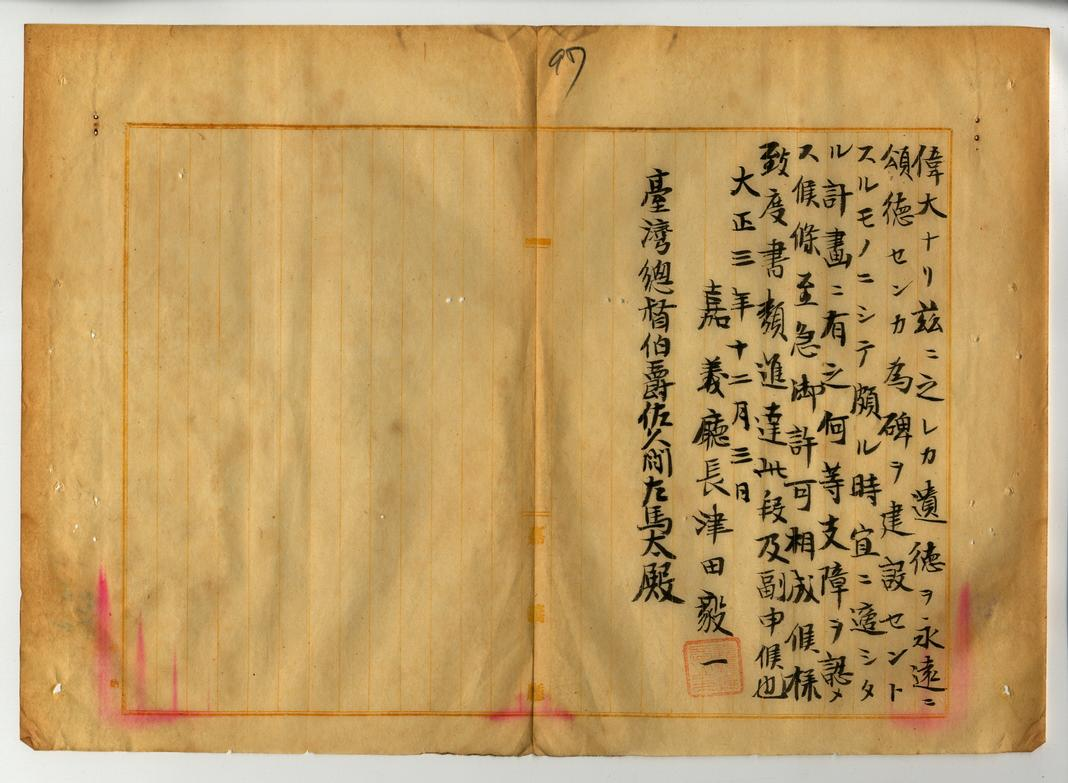 97
偉大ナリ茲ニ之レカ遺徳ヲ永遠ニ
頌徳センカ為碑ヲ建設セント
スルモノニシテ頗ル時宜ニ適シタ
ル計畫ニ有之何等支障ヲ認メ
ス候條至急御許可相成候様
致度書類進達此段及副申候也
大正三年十二月三日
嘉義廳長津田毅一
臺灣總督伯爵佐久間左馬太殿